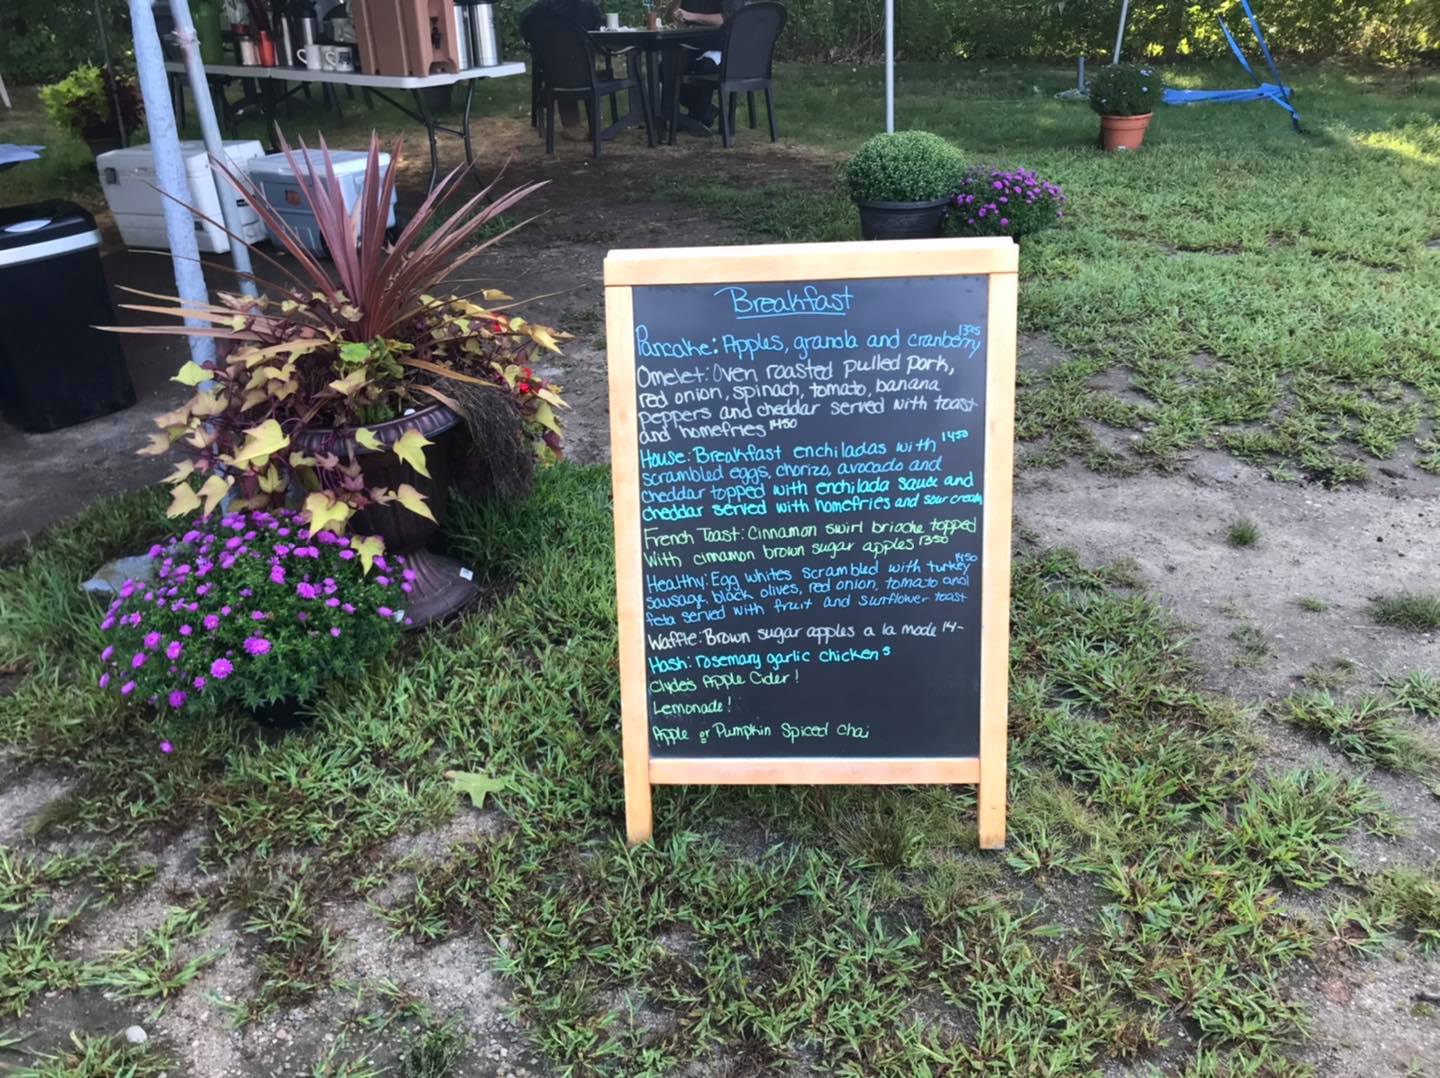 Breakfast
Pancake: Apples, granola and cranberry 1395
Omelet: Oven roasted pulled pork,
red onion, spinach, tomato, banana
peppers and cheddar served with toast
and homefries 1450
House: Breakfast enchiladas with 1450
scrambled eggs, chorizo, avocado and
cheddar topped with enchilada sauce and
cheddar served with homefries and sour cream
French Toast: Cinnamon swirl brioche topped
with cinnamon brown sugar apples 1350
Healthy: Egg whites scrambled with turkey 1450
sausage, black olives, red onion, tomato and
feta served with fruit and sunflower toast
Waffle: Brown sugar apples a la mode 14-
Hash: rosemary garlic chicken 5
Clyde's Apple Cider!
Lemonade!
Apple or Pumpkin Spiced Chai